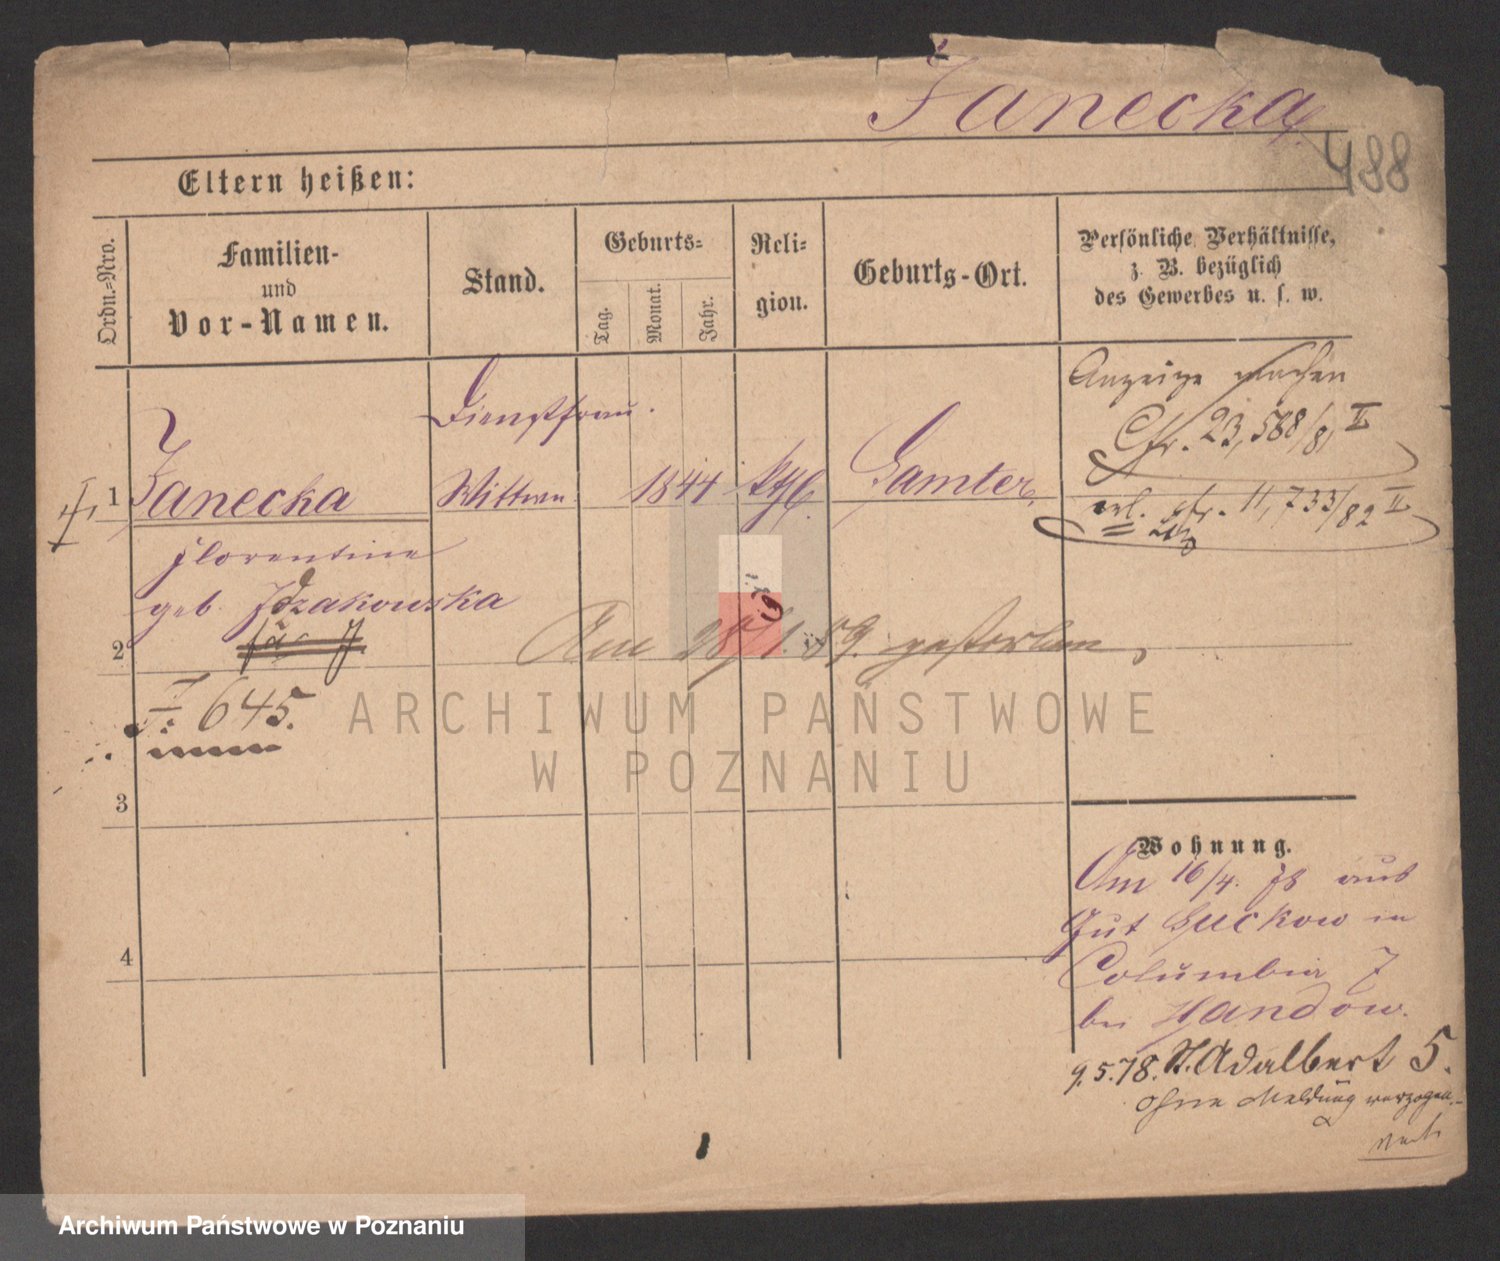 Janecka
488
Eltern heißen:
Ordn.-Nro.
Familien-
und
Vor-Namen.
Stand.
Geburts-
Tag.
Monat.
Jahr.
Reli-
gion.
Geburts-Ort.
Persönliche Verhältnisse,
z. B. bezüglich
des Gewerbes u. s. w.
Anzeige machen
Cfr. 23,588/81 II
Dienstfrau.
1 Janecka Wittwe 1844 kth. Samter.
erl. cfr. 11,733/82 II
Florentine
geb. Idzakowska
2
Am 28/1. 89. gestorben,
I: 645.
ARCHIWUM PAŃSTWOWE
W POZNANIU
3
Wohnung.
Am 16/4. 78 aus
Gut Luckow in
4
Columbia 7
bei Handow.
9.5.78. St. Adalbert 5.
ohne Meldung verzogen.
Archiwum Państwowe w Poznaniu